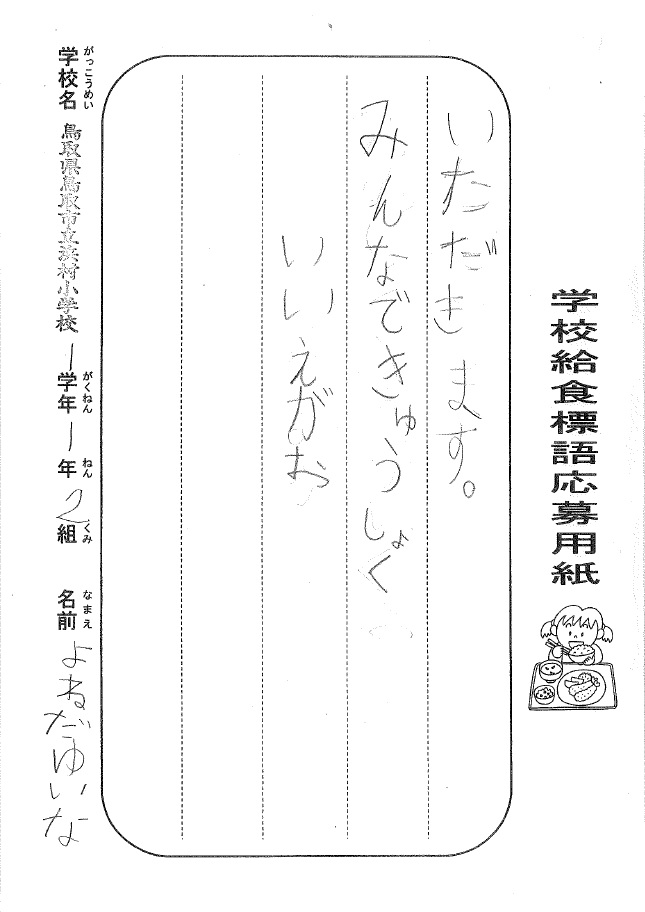 学校給食標語応募用紙
いただきます。
みんなできゅうしょく
いいえがお
学校名 がっこうめい 鳥取県鳥取市立浜村小学校 一学年 がくねん 一年 ねん 2組 くみ 名前 なまえ よねだゆいな